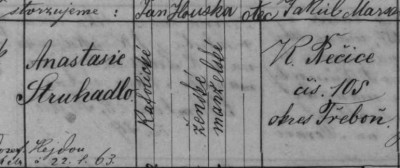 stvrzujeme : Jan Houska otec Jakub
Anastasie
Struhadlo.
Katolické
ženské
manželské
K. Řečice
čís. 105
okres Třeboň.
22. 1. 63.